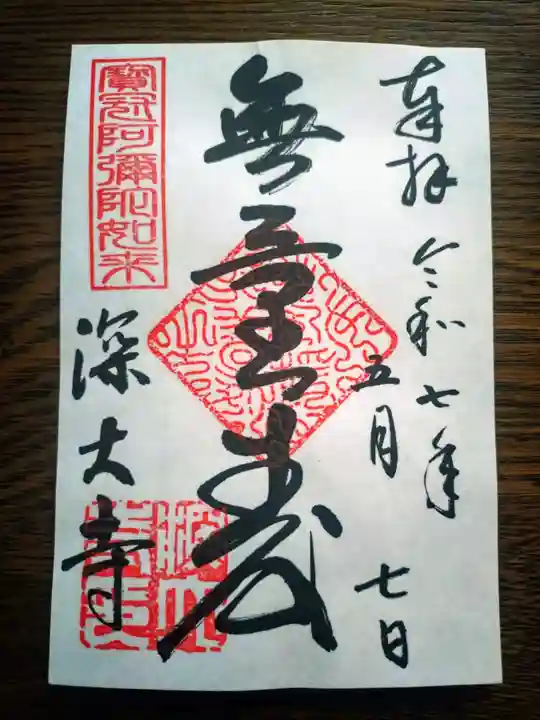 奉拝
令和七年
五月
七日
無量壽
寳冠阿彌陀如来
深大寺